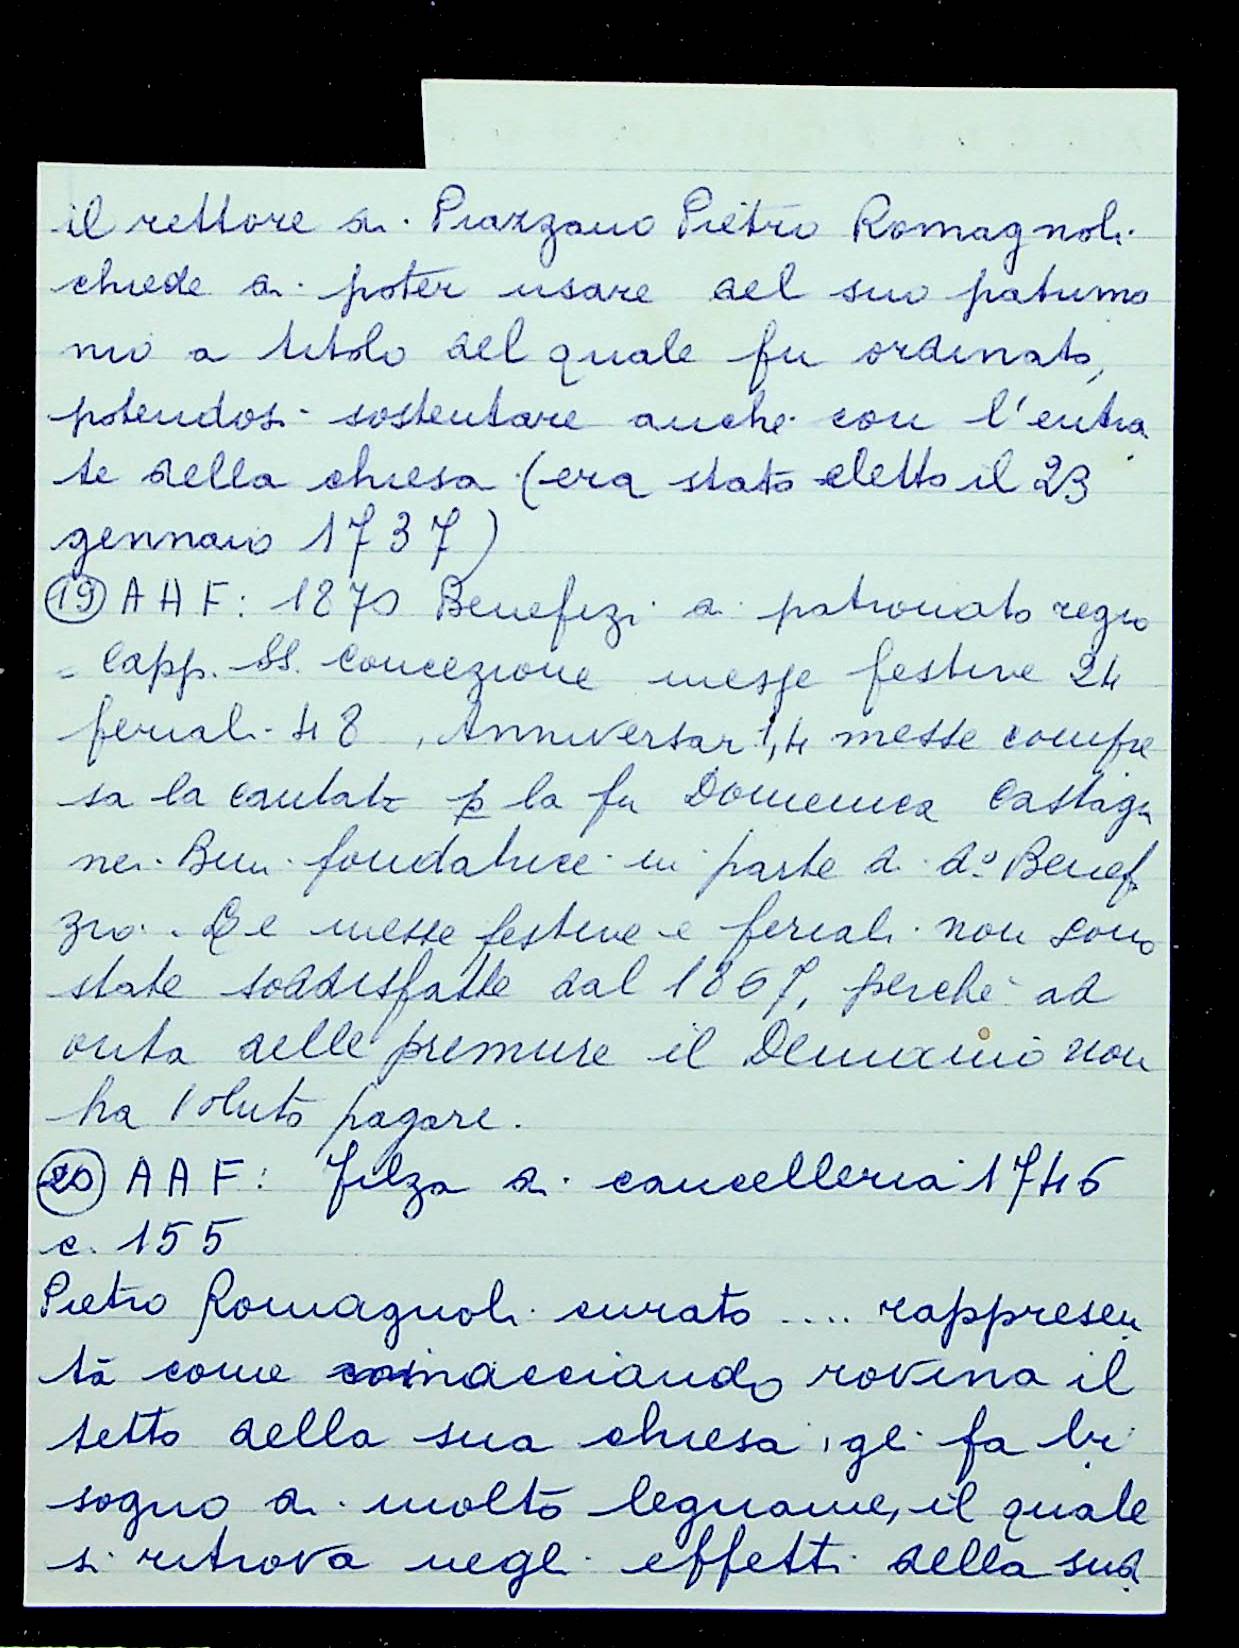 il rettore di Piazzano Pietro Romagnoli
chiede di poter usare del suo patrimo
nio a titolo del quale fu ordinato,
potendosi sostentare anche con l'entra
te della chiesa (era stato eletto il 23
gennaio 1737)
(19) AAF: 1870 Benefizi di patronato regio
= Capp. SS. Concezione messe festive 24
feriali 48, Anniversari 1, 4 messe compre
sa la cantata p la fu Domenica Castagn
nei fondatrice in parte di do Benef
zio. Le messe festive e feriali non sono
state soddisfatte dal 1867, perché ad
onta delle premure il Demanio non
ha voluto pagare.
(20) AAF: Filza di cancelleria 1746
c. 155
Pietro Romagnoli curato .... rappresen
ta come minacciando rovina il
tetto della sua chiesa, gli fa bi
sogno di molto legname, il quale
si ritrova negli effetti della sua